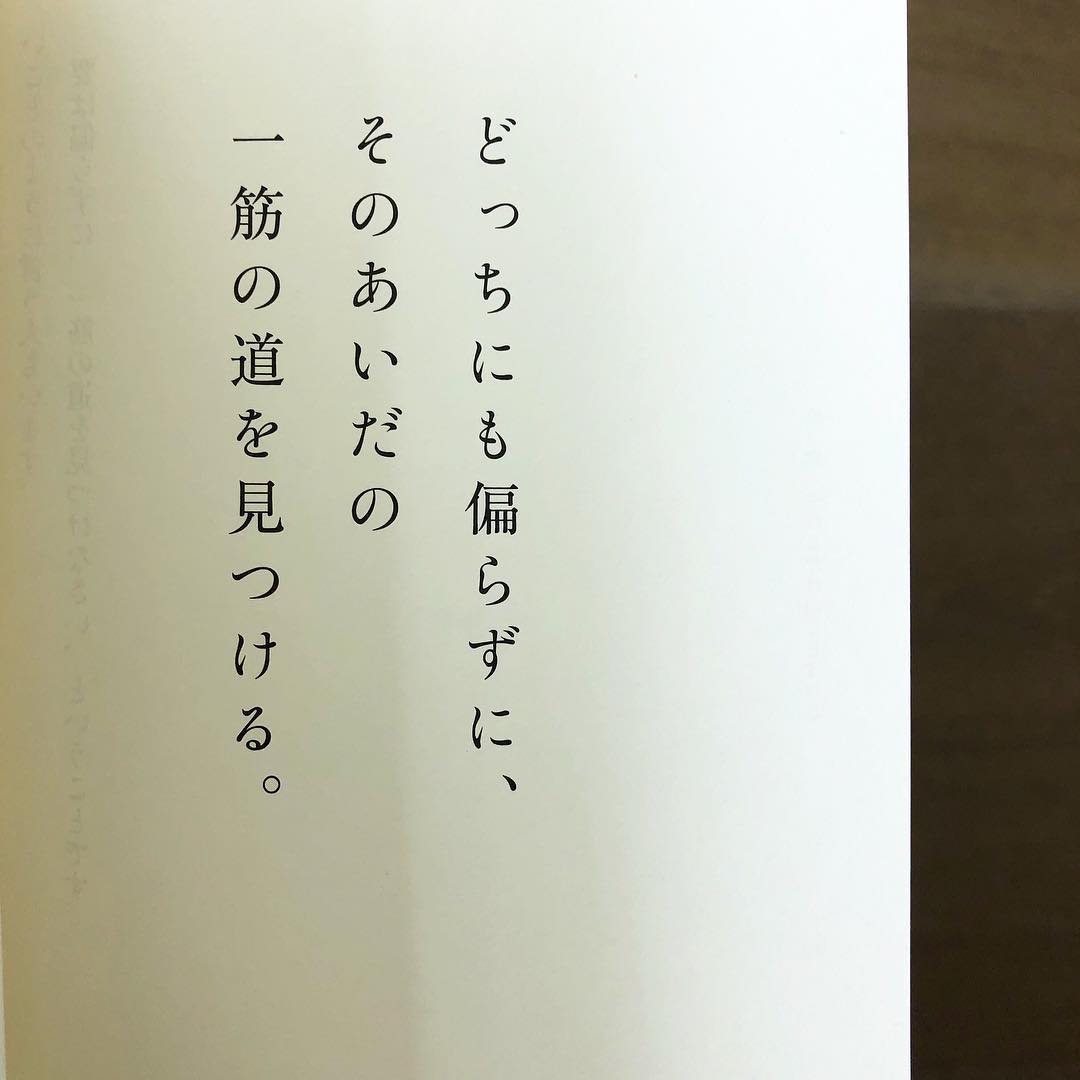 どっちにも偏らずに、
そのあいだの
一筋の道を見つける。